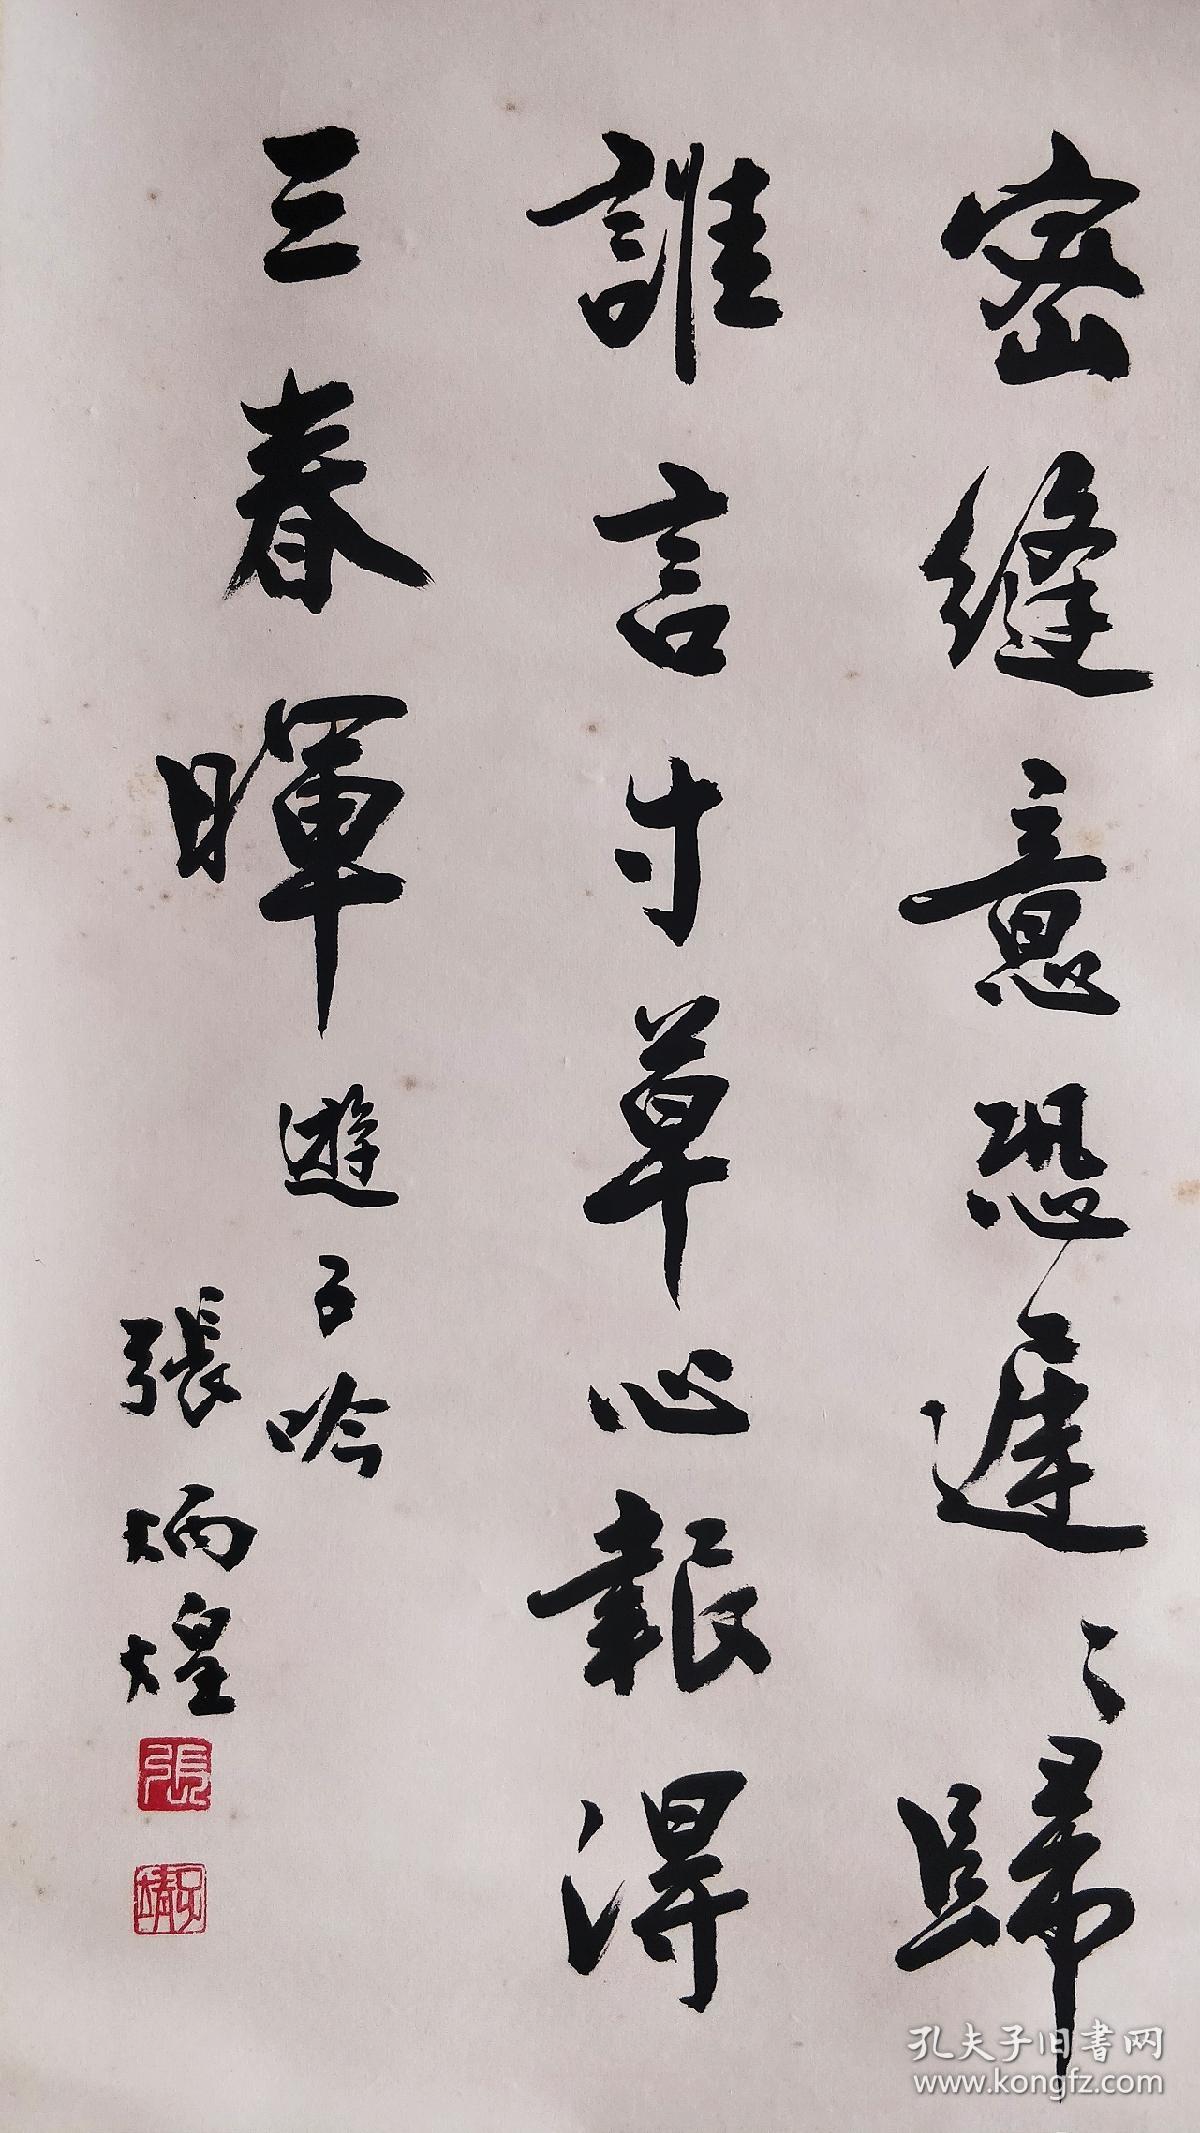 密縫意恐遲〻歸
誰言寸草心報得
三春暉
遊子吟
張炳煌
張
孔夫子旧书网
www.kongfz.com